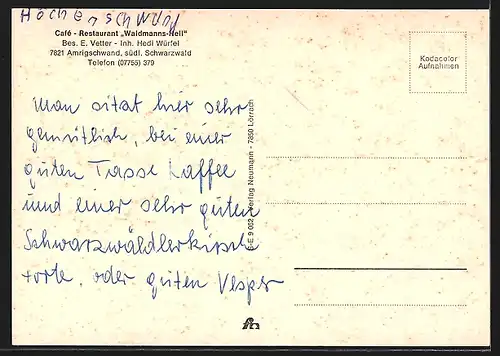 Höchenschwand
Café - Restaurant „Waidmanns-Heil"
Bes. E. Vetter - Inh. Hedi Würfel
7821 Amrigschwand, südl. Schwarzwald
Telefon (07755) 379
Kodacolor
Aufnahmen
Man sitzt hier sehr
gemütlich, bei einer
guten Tasse Kaffee
und einer sehr guten
Schwarzwäldlerkirsch
torte, oder guten Vesper
Verlag Neumann - 7850 Lörrach